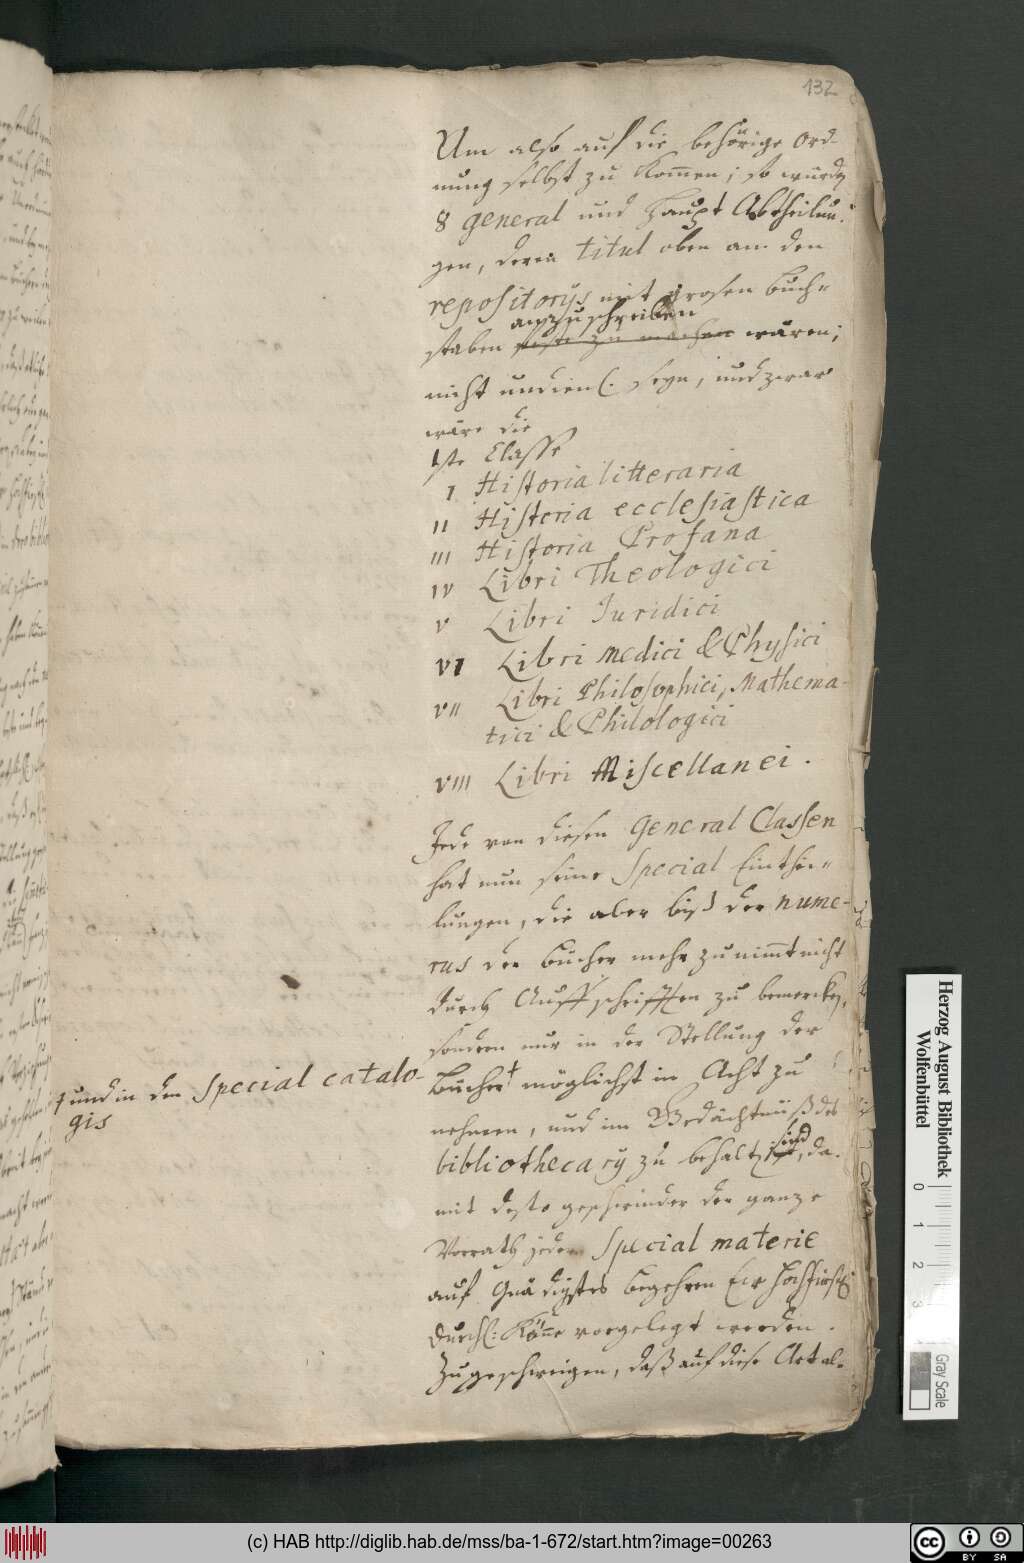 132
Um also auf die behörige Ord-
nung selbst zu kommen; so würden
8 general und Haupt Abtheilun-
gen, deren titul oben am den
repositorijs mit grosen Buch-
anzuschreiben
staben zu machen wären;
nicht undienl. seyn, und zwar
wäre die
1ste Classe
I Historia litteraria
II Historia ecclesiastica
III Historia Profana
IV Libri Theologici
V Libri Juridici
VI Libri medici & Physici
VII Libri Philosophici, Mathema-
tici & Philologici
VIII Libri Miscellanei.
Jede von diesen General Classen
hat nun seine Special Einthei-
lungen, die aber biß der nume-
rus der Bücher mehr zunimmt nicht
durch Auffschrifften zu bemercken,
sondern nur in der Stellung der
Bücher † möglichst in Acht zu
† und in den Special catalo-
gis
nehmen, und im Gedächtnüß des
bibliothecarij zu behalten sind, da-
mit desto geschwinder der ganze
Vorrath jeder Special materie
auf Gnädigstes begehren Ew Hochfürstl
Durchl: könne vorgelegt werden.
Zugeschweigen, daß auf diese Art al-
Herzog August Bibliothek
Wolfenbüttel
0 1 2 3
Gray Scale
(c) HAB http://diglib.hab.de/mss/ba-1-672/start.htm?image=00263
cc BY SA